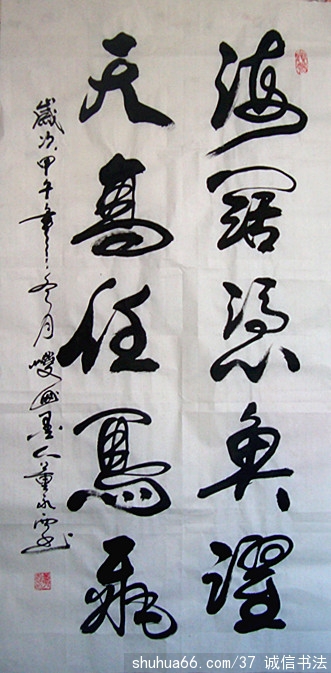 海阔凭鱼躍
天高任鳥飛
歲次甲午年冬月
shuhua66.com/37 诚信书法